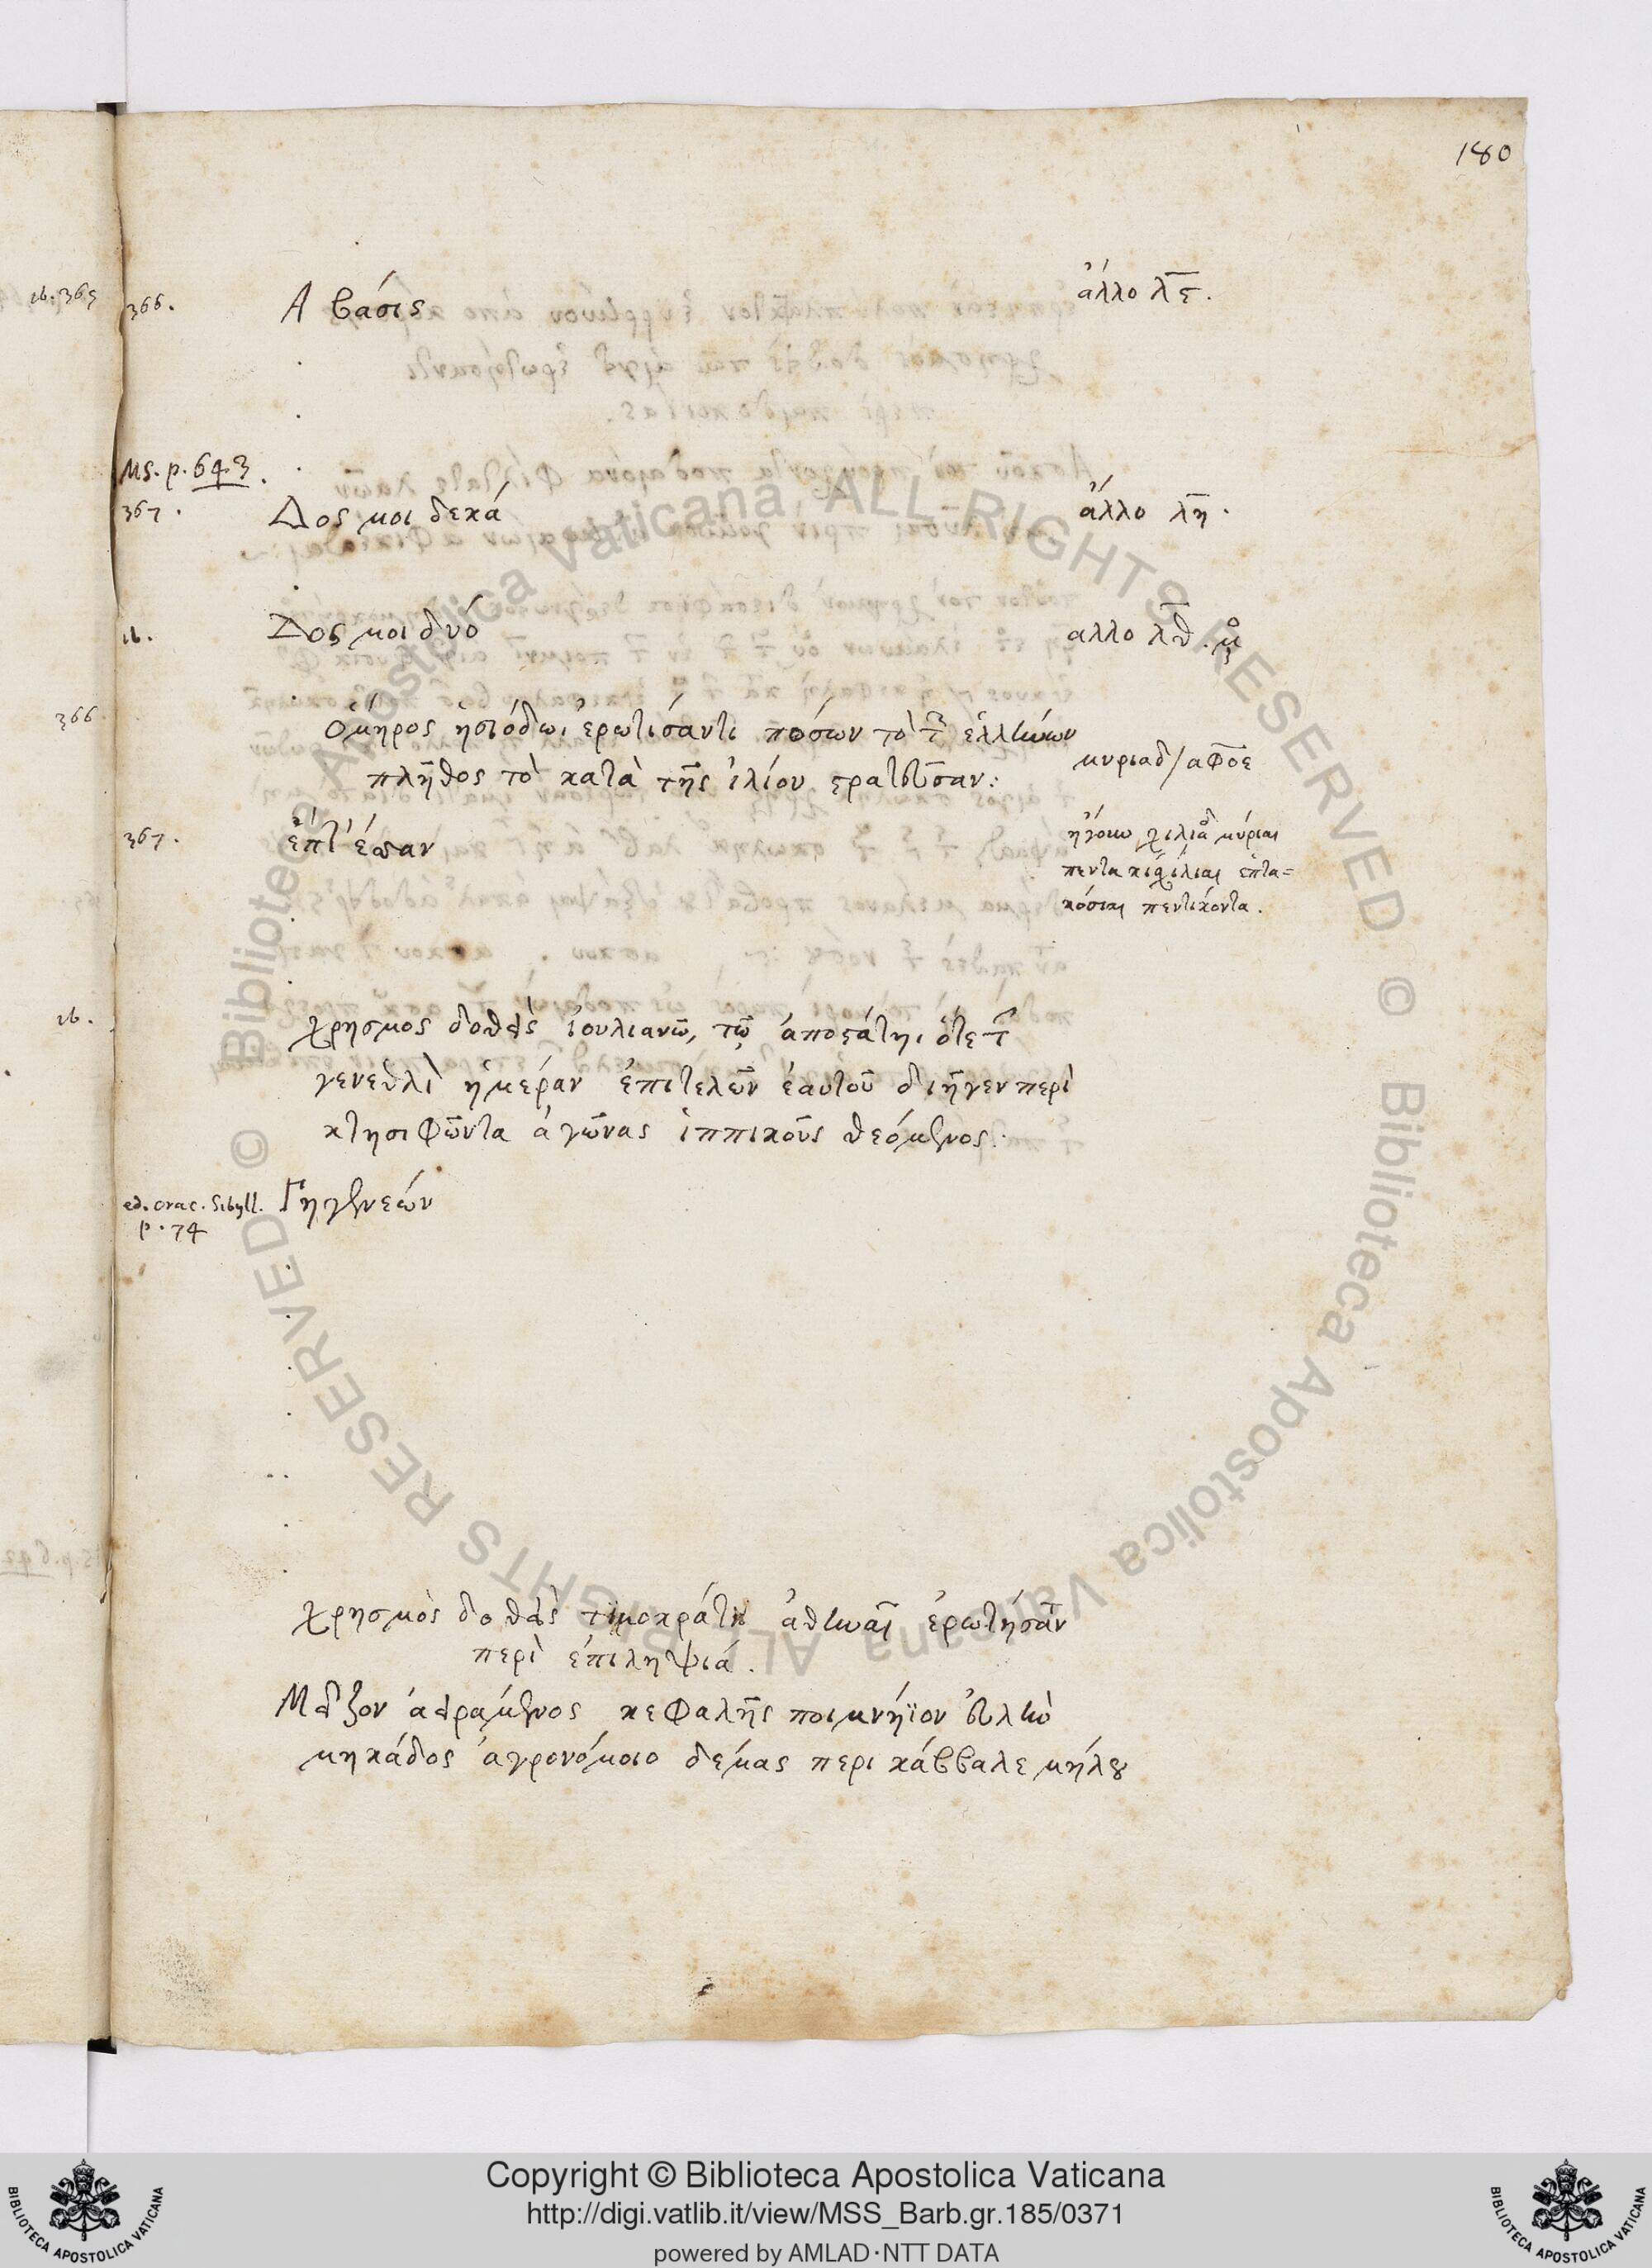 180
ιb. 365
366. Α βάσις ἄλλο λϛ.
Ms. p. 643.
367. Δος μοι δεκά ἄλλο λη.
ιb. Δος μοι δυό αλλο λθ.
366. Ομηρος ἡσιόδωι ἐρωτισαντι πόσων τὸ τ ἑλλήνων
πλῆθος τὸ κατὰ τῆς ἰλίου στρατεῦσαν: μυριαδ/αφοε
367. ἑπτ' ἔσαν
ἤγουν χιλιαδ μύριαι
πεντακισχίλιαι ἑπτα=
κόσιαι πεντίκοντα.
ιb. χρησμος δοθεὶς ἰουλιανῶ, τῶ ἀποστάτηι ὁτε τ
γενεθλὶ ἡμέραν ἐπιτελῶν ἑαυτοῦ διῆγεν περὶ
κτησιφῶντα ἀγῶνας ἱππικοὺς θεόμενος.
ed. orac. Sibyll. Γηγενεών
p. 74
χρησμὸς δοθεὶς τιμοκράτη ἀθηναι ἐρωτήσαντ
περὶ ἐπιληψιά.
Μεῖζον ἀειράμενος κεφαλῆς ποιμνήϊον εὐλην
μηκάδος ἀγρονόμοιο δέμας περικάββαλε μήλου
Copyright © Biblioteca Apostolica Vaticana
http://digi.vatlib.it/view/MSS_Barb.gr.185/0371
powered by AMLAD·NTT DATA
BIBLIOTECA APOSTOLICA VATICANA
BIBLIOTECA APOSTOLICA VATICANA
© Biblioteca Apostolica Vaticana ALL RIGHTS RESERVED © Biblioteca Apostolica Vaticana ALL RIGHTS RESERVED